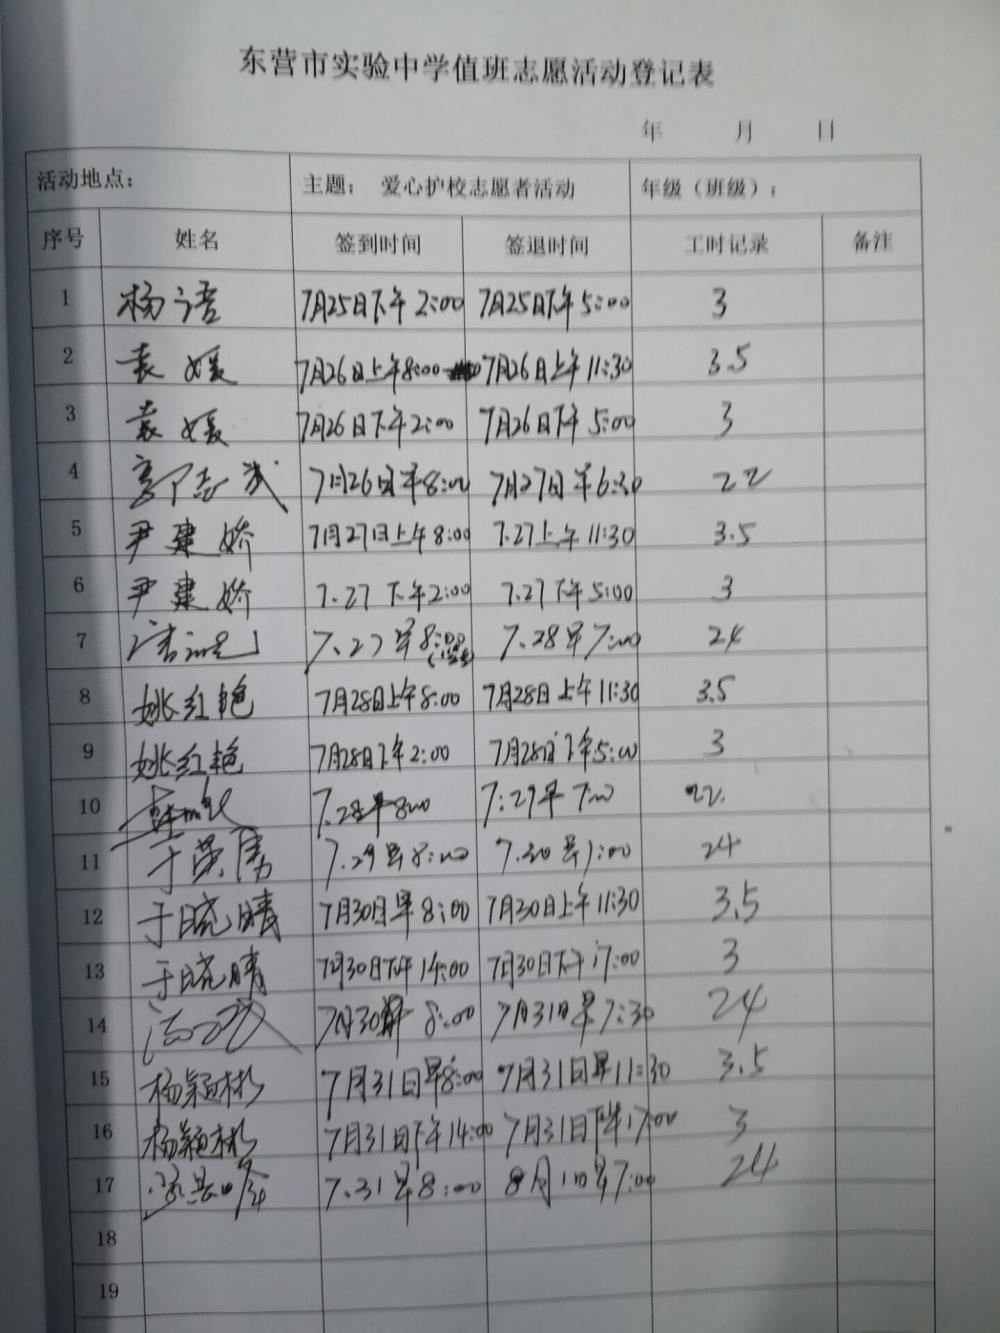 东营市实验中学值班志愿活动登记表
年 月 日
活动地点： 主题： 爱心护校志愿者活动 年级（班级）：
序号 姓名 签到时间 签退时间 工时记录 备注
1 杨语 7月25日下午2:00 7月25日下午5:00 3
2 袁媛 7月26日上午8:00 7月26日上午11:30 3.5
3 袁媛 7月26日下午2:00 7月26日下午5:00 3
4 7月26日早8:00 7月27日早6:30 22
5 尹建娇 7月27日上午8:00 7.27上午11:30 3.5
6 尹建娇 7.27下午2:00 7.27下午5:00 3
7 7.27早8:00 7.28早7:00 24
8 姚红艳 7月28日上午8:00 7月28日上午11:30 3.5
9 姚红艳 7月28日下午2:00 7月28日下午5:00 3
10 7.28早8:00 7.29早7:00 22
11 7.29早8:00 7.30早7:00 24
12 于晓晴 7月30日早8:00 7月30日上午11:30 3.5
13 于晓晴 7月30日下午14:00 7月30日下午17:00 3
14 7月30 8:00 7月31日早7:30 24
15 杨颖彬 7月31日早8:00 7月31日早11:30 3.5
16 杨颖彬 7月31日下午14:00 7月31日下午17:00 3
17 7.31早8:00 8月1日早7:00 24
18
19